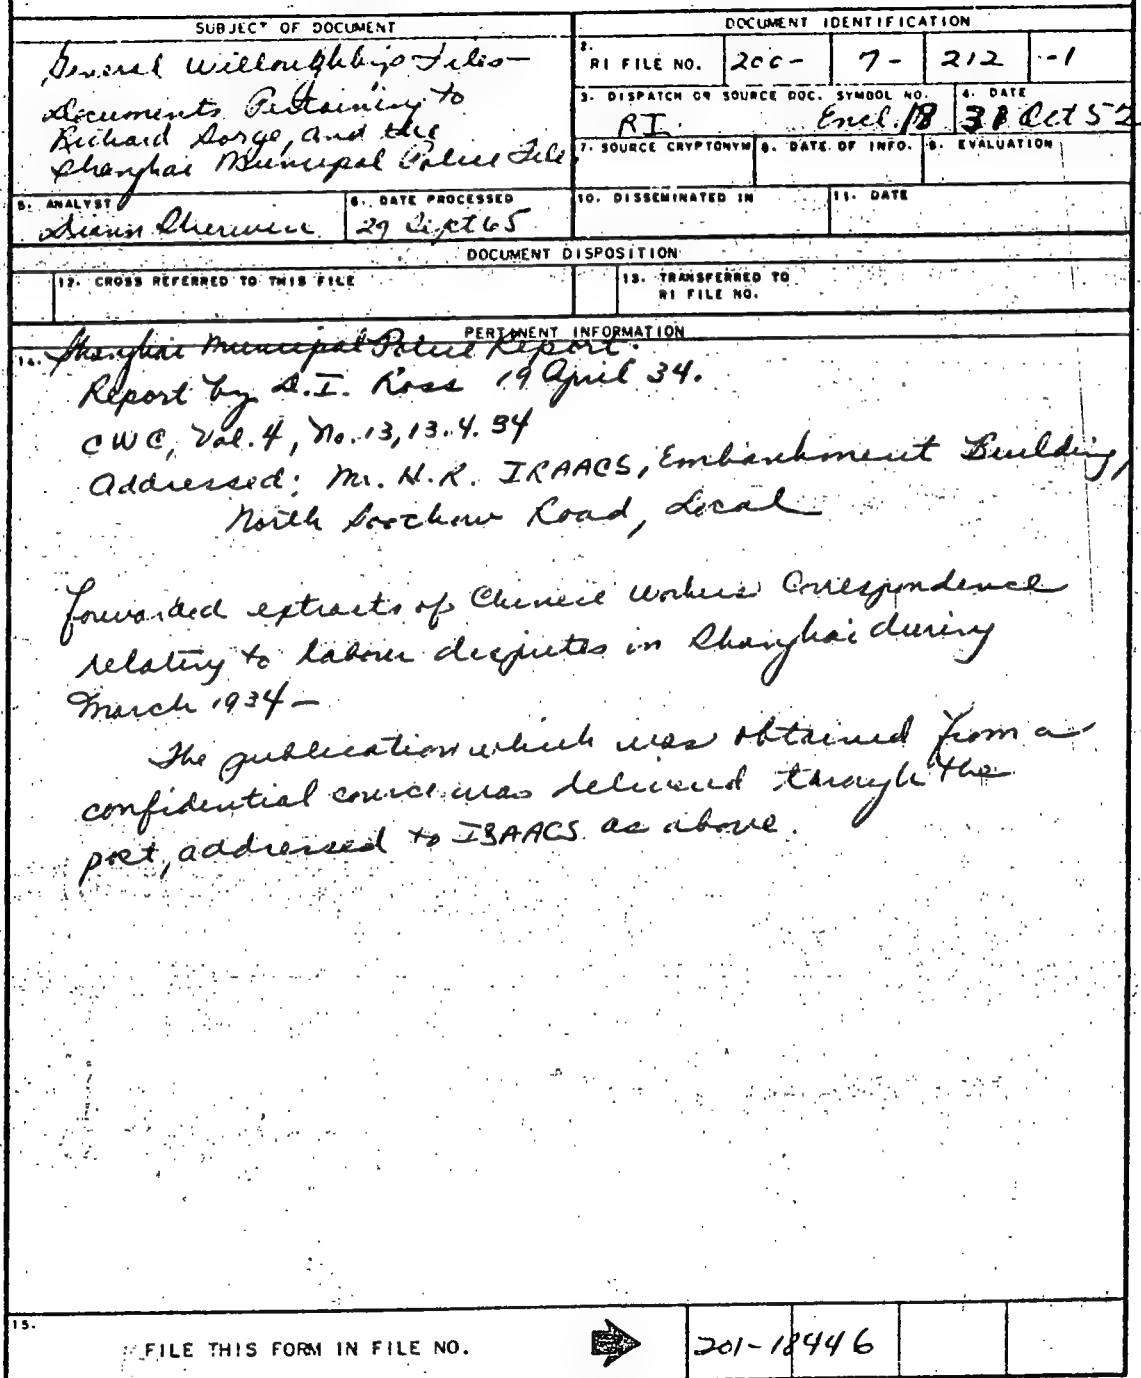 SUBJECT OF DOCUMENT
General Willoughby's Files-
Documents Pertaining to
Richard Sorge, and the
Shanghai Municipal Police File
DOCUMENT IDENTIFICATION
2. RI FILE NO. 200- 7- 212 -1
3. DISPATCH OR SOURCE DOC. SYMBOL NO. 4. DATE
RI. Encl. 18 31 Oct 52
7. SOURCE CRYPTONYM 8. DATE OF INFO. 9. EVALUATION
5. ANALYST 6. DATE PROCESSED 10. DISSEMINATED IN 11. DATE
29 Sept 65
DOCUMENT DISPOSITION
12. CROSS REFERRED TO THIS FILE 13. TRANSFERRED TO
RI FILE NO.
PERTINENT INFORMATION
14. Shanghai Municipal Police Report.
Report by D.I. Ross 19 April 34.
CWC, Vol. 4, No. 13, 13. 4. 34
Addressed: Mr. H.R. ISAACS, Embankment Building,
North Soochow Road, Local
forwarded extracts of Chinese Workers Correspondence
relating to labour disputes in Shanghai during
March 1934 —
The publication which was obtained from a
confidential source was delivered through the
post, addressed to ISAACS as above.
15.
FILE THIS FORM IN FILE NO. 201-18446